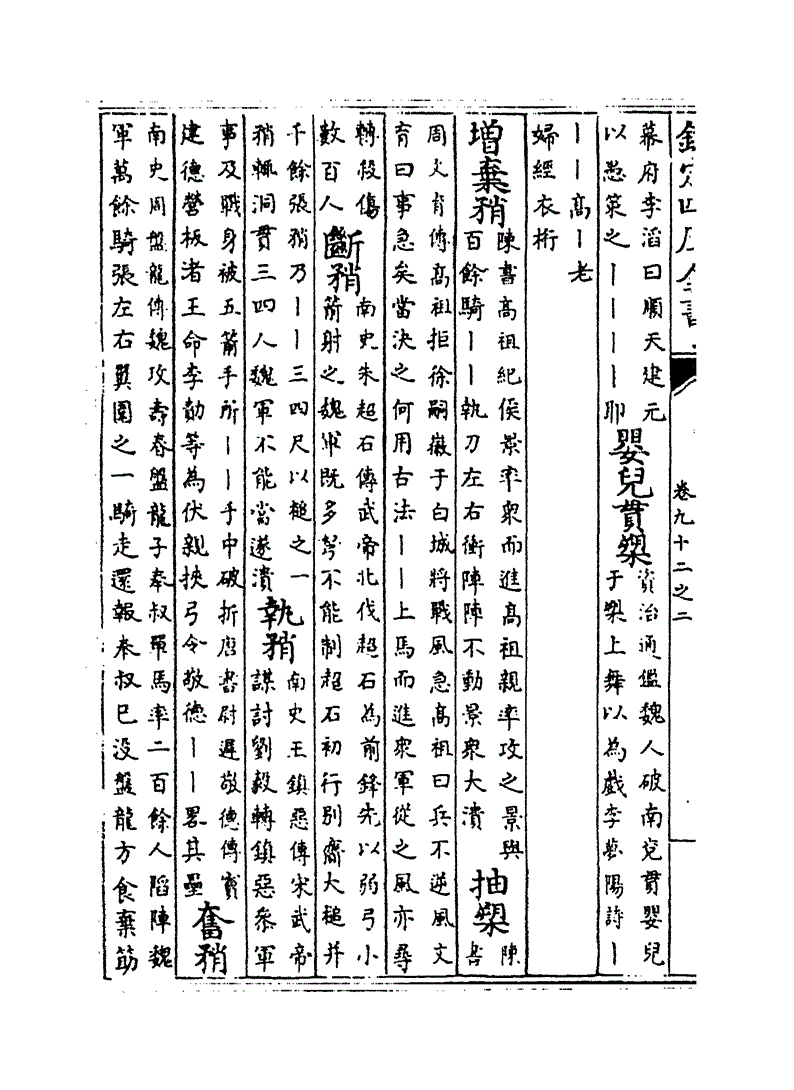 欽定四庫全書
卷九十二之二
幕府李滔曰順天建元
以愚策之||||耶
嬰兒貫槊
資治通鑑魏人破南兖貫嬰兒
于槊上舞以為戲李夢陽詩|
||高|老
婦經衣桁
增棄矟
陳書高祖紀侯景率衆而進高祖親率攻之景與
百餘騎||執刀左右衝陣陣不動景衆大潰
抽槊
陳
書
周文育傳高祖拒徐嗣徽于白城將戰風急高祖曰兵不逆風文
育曰事急矣當決之何用古法||上馬而進衆軍從之風亦尋
轉殺傷
數百人
斷矟
南史朱超石傳武帝北伐超石為前鋒先以弱弓小
箭射之魏軍既多弩不能制超石初行別齎大槌并
千餘張矟乃||三四尺以槌之一
矟輒洞貫三四人魏軍不能當遂潰
執矟
南史王鎮惡傳宋武帝
謀討劉毅轉鎮惡參軍
事及戰身被五箭手所||手中破折唐書尉遲敬德傳竇
建德營板渚王命李勣等為伏親挾弓令敬德||畧其壘
奮矟
南史周盤龍傳魏攻壽春盤龍子奉叔單馬率二百餘人陷陣魏
軍萬餘騎張左右翼圍之一騎走還報奉叔已没盤龍方食棄筯